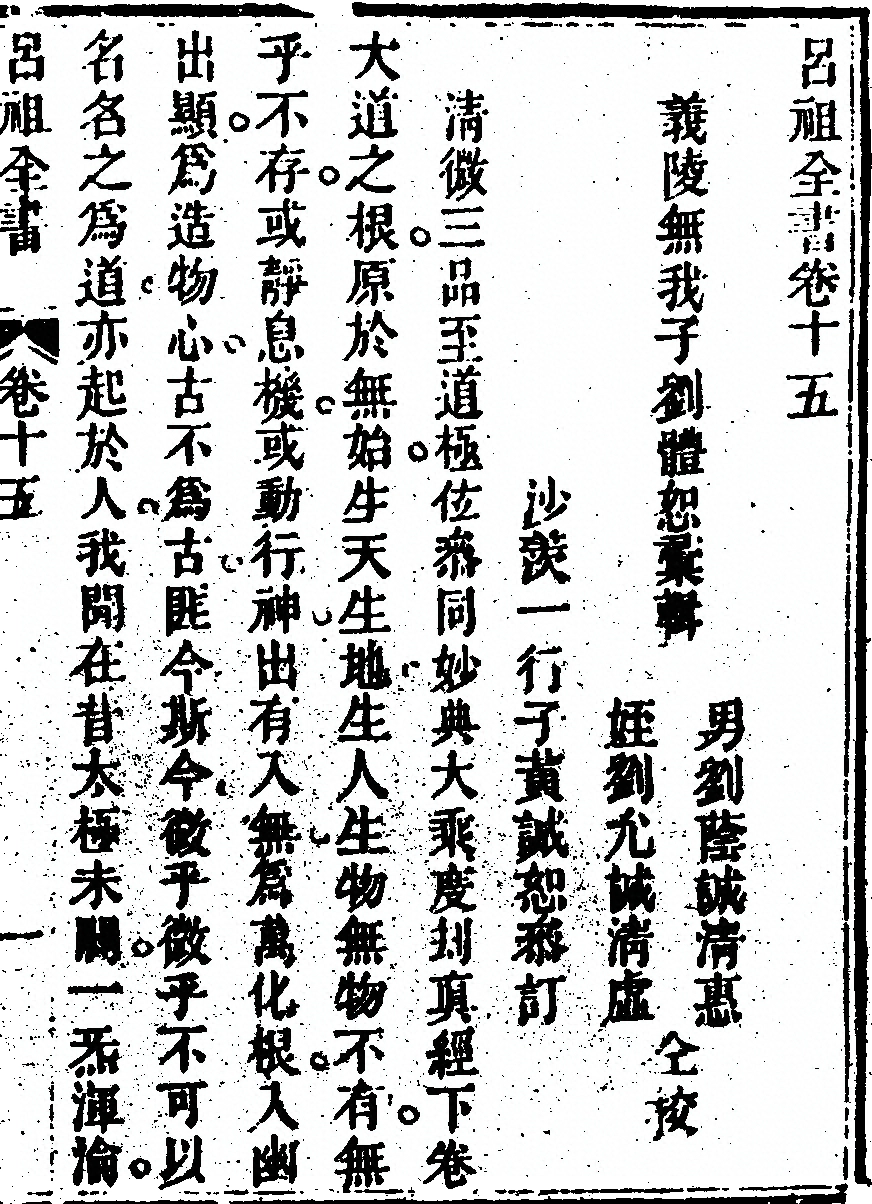 呂祖全書卷十五
義陵無我子劉體恕彙輯
男劉蔭誠清惠
姪劉允誠清虛
仝挍
沙羨一行子黃誠恕叅訂
清微三品至道極位叅同妙典大乘度刦眞經下卷
大道之根原於無始生天生地生人生物無物不有無
乎不存或靜息機或動行神出有入無爲萬化根入幽
出顯爲造物心古不爲古匪今斯今微乎微乎不可以
名名之爲道亦起於人我聞在昔太極未闢一炁渾淪
呂祖全書
卷十五
一